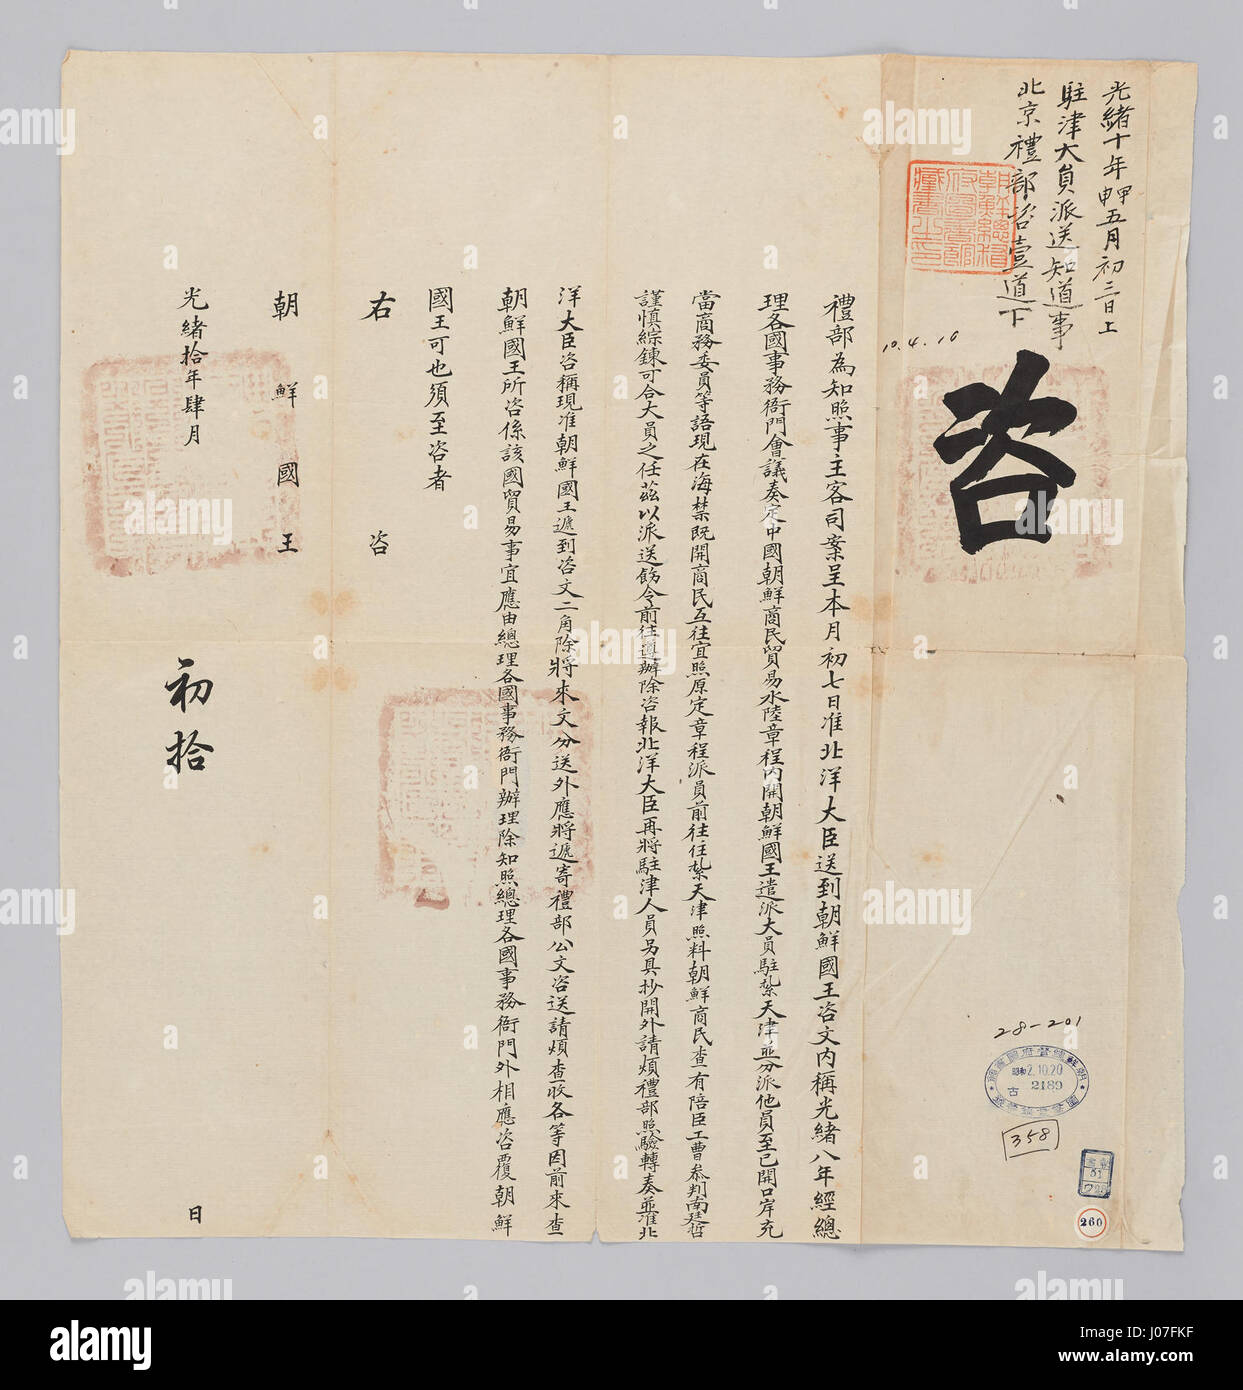 光緒十年甲申五月初三日上
駐津大員派送知道事
北京禮部咨壹道下
朝鮮總督府圖書館藏書之印
10.4.10
咨
禮部為知照事主客司案呈本月初七日准北洋大臣送到朝鮮國王咨文內稱光緒八年經總
理各國事務衙門會議奏定中國朝鮮商民貿易水陸章程內開朝鮮國王遣派大員駐紮天津並分派他員至已開口岸充
當商務委員等語現在海禁既開商民互往宜照原定章程派員前往住紮天津照料朝鮮商民查有陪臣工曹叅判南廷哲
謹慎綜鍊可合大員之任茲以派送飭令前往遵辦除咨報北洋大臣再將駐津人員另具抄開外請煩禮部照驗轉奏並准北
洋大臣咨稱現准朝鮮國王遞到咨文二角除將來文分送外應將遞寄禮部公文咨送請煩查收各等因前來查
朝鮮國王所咨係該國貿易事宜應由總理各國事務衙門辦理除知照總理各國事務衙門外相應咨覆朝鮮
國王可也須至咨者
右咨
朝鮮國王
光緒拾年肆月初拾日
28-201
昭和2.10.20
古 2189
358
51
260
alamy
www.alamy.com
Image ID: J07FKF